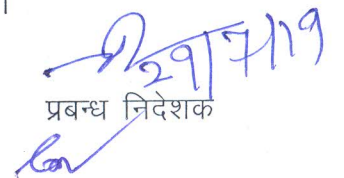 29/7/19
प्रबन्ध निदेशक